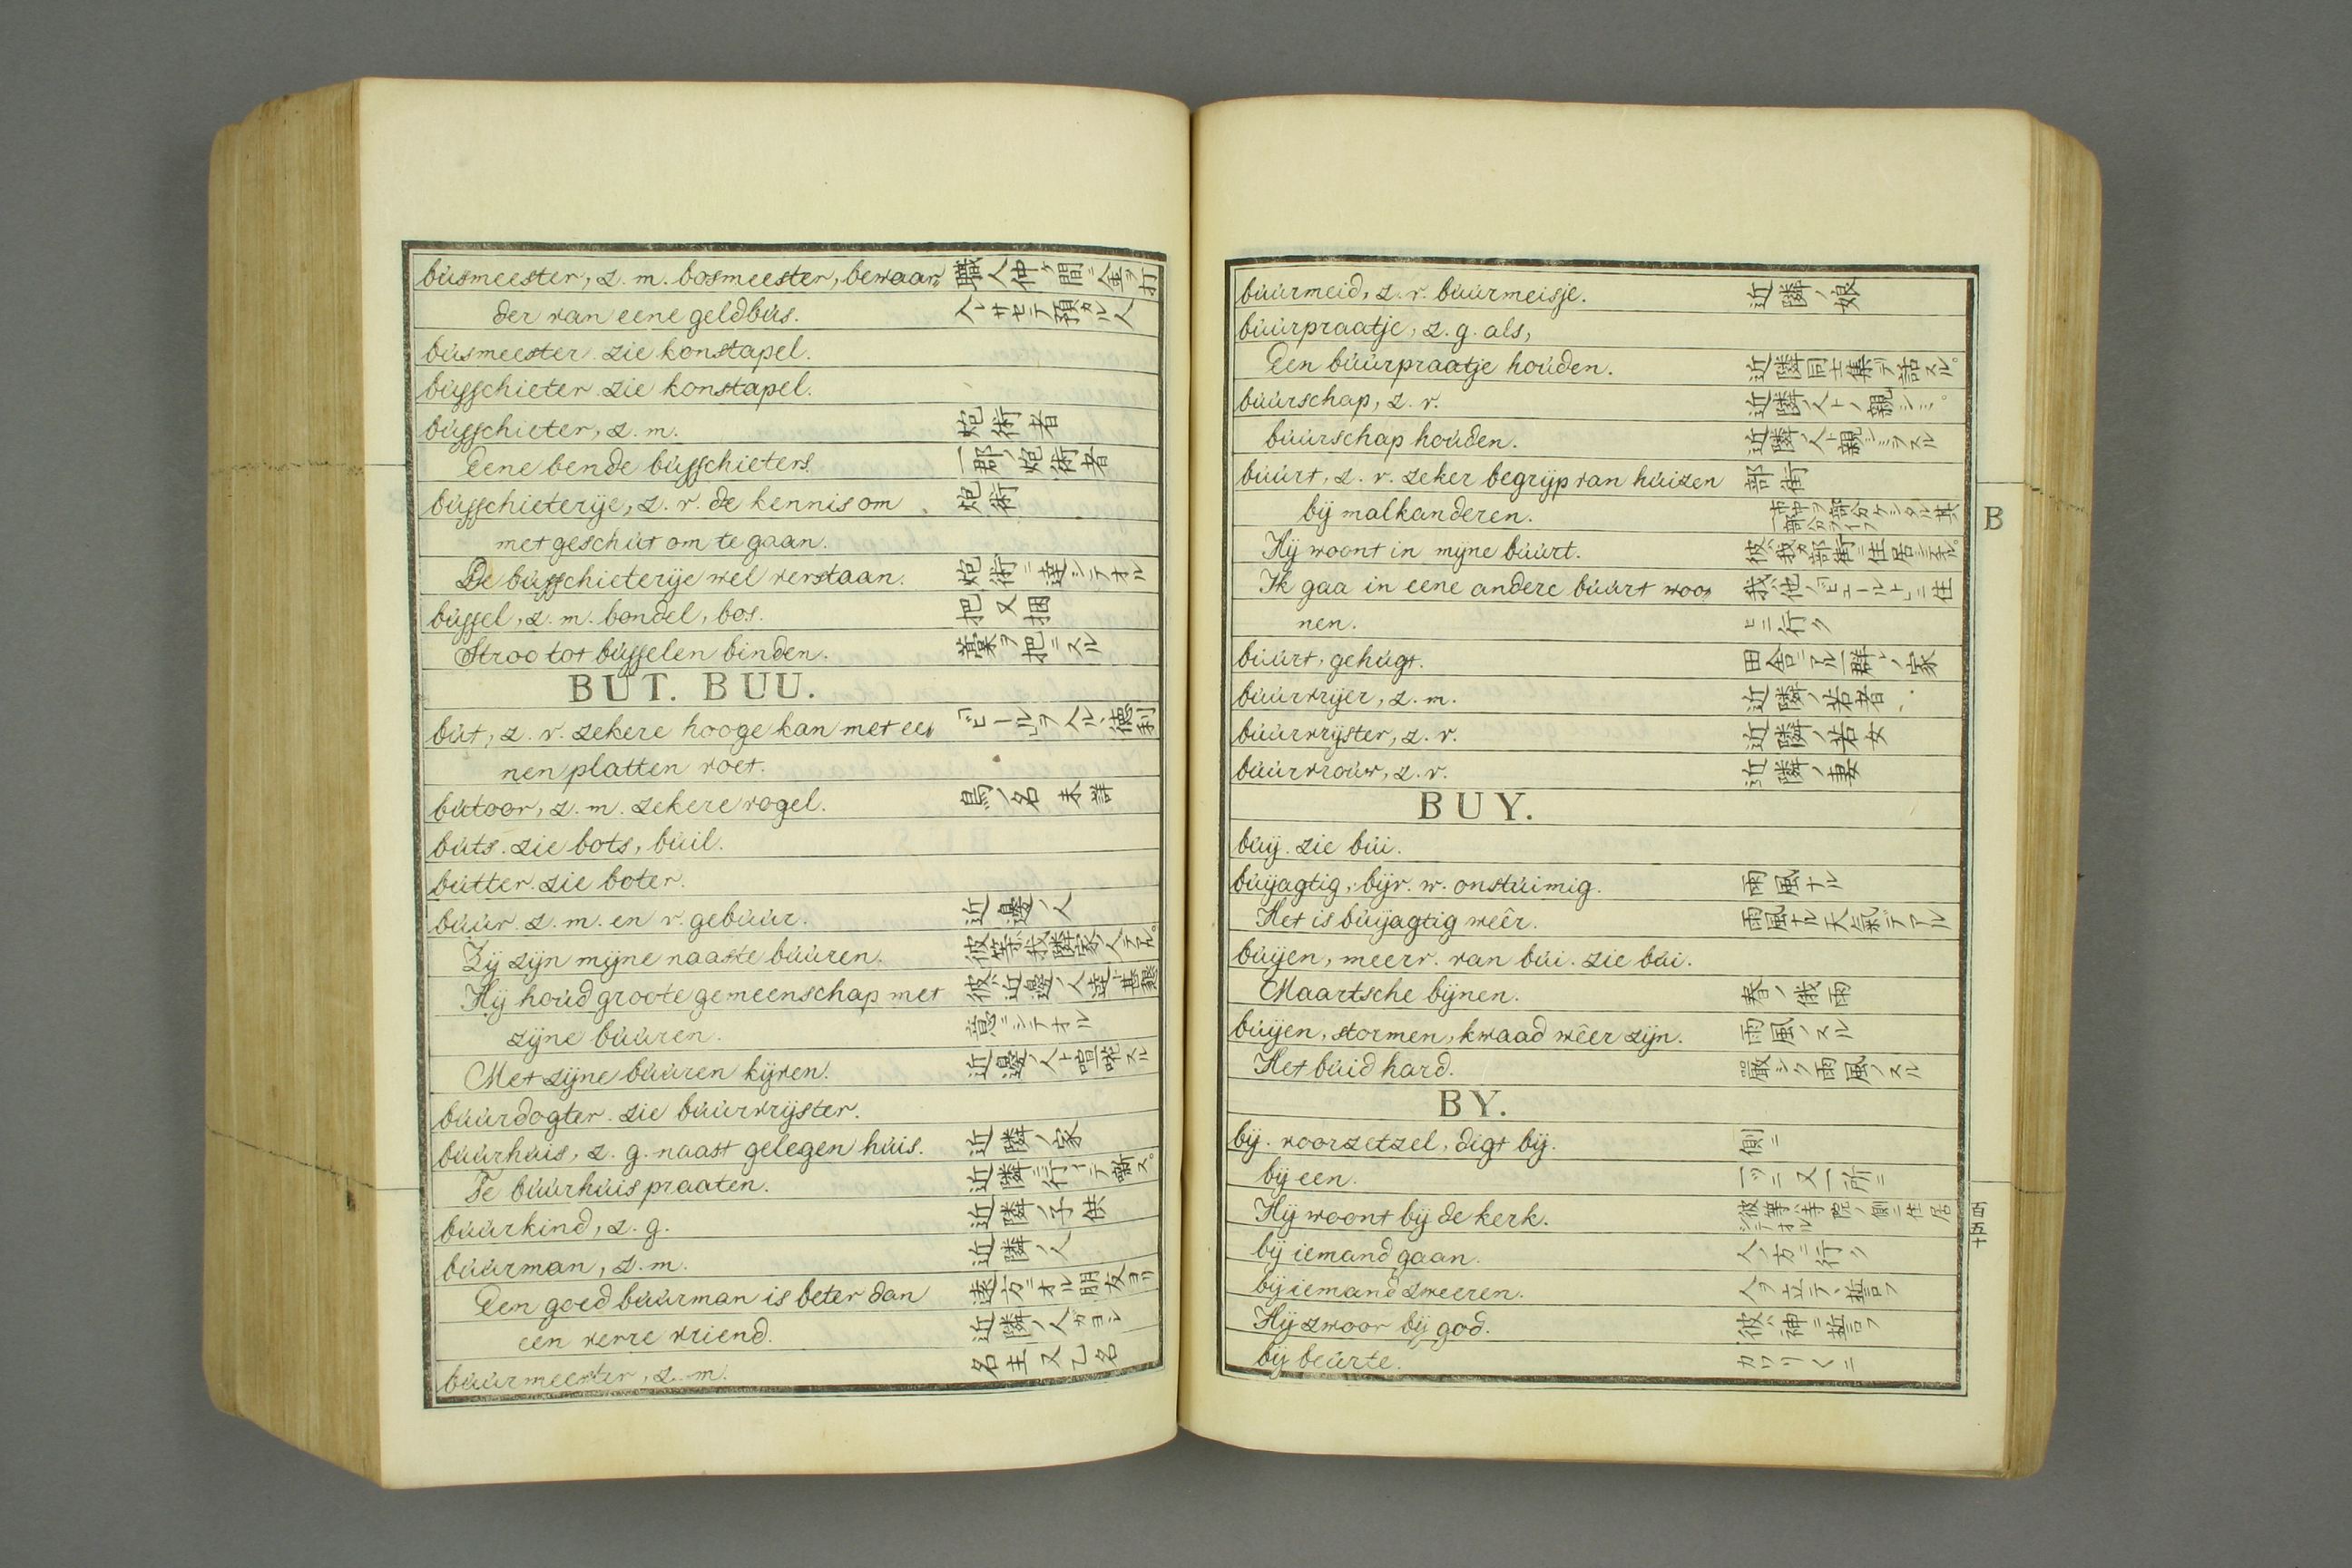 bùsmeester, z. m. bosmeester, bewaar= 職人仲ヶ間ニ金ヲ打
der van eene geldbùs. 入レサセテ預タル人
bùsmeester. zie konstapel.
bùsschieter. zie konstapel.
bùsschieter, z. m. 炮術者
Eene bende bùsschieters. 一郡ノ炮術者
bùsschieterije, z. v. de kennis om 炮術
met geschùt om te gaan.
De bùsschieterije wel verstaan. 炮術ニ達シテオル
bùssel, z. m. bondel, bos. 把又捆
Stroo tot bùsselen binden. 藁ヲ把ニスル
BUT. BUU.
bùt, z. v. zekere hooge kan met ee= 「ビール」ヲ入ル、德利
nen platten voet.
bùtoor, z. m. zekere vogel. 鳥ノ名 未詳
bùts. zie bots, bùil.
bùtter. zie boter.
bùùr. z. m. en v. gebùùr. 近邊ノ人
Zij zijn mijne naaste bùùren. 彼等ハ我隣家ノ人デアル。
Hij hoùd groote gemeenschap met 彼ハ近邊ノ人達ト甚懇
zijne bùùren. 意ニシテオル
Met zijne bùùren kijven. 近邊ノ人ト喧嘩スル
bùùrdogter. zie bùùrvrijster.
bùùrhùis, z. g. naast gelegen hùis. 近隣ノ家
Te bùùrhùis praaten. 近隣ニ行イテ噺ス。
bùùrkind, z. g. 近隣ノ子供
bùùrman, z. m. 近隣ノ人
Een goed bùùrman is beter dan 遠方ニオル朋友ヨリ
een verre vriend. 近隣ノ人ガヨシ
bùùrmeester, z. m. 名主又乙名
bùùrmeid, z. v. bùùrmeisje. 近隣ノ娘
bùùrpraatje, z. g. als,
Een bùùrpraatje hoùden. 近隣同士集テ話スル。
bùùrschap, z. v. 近隣ノ人トノ親シミ。
bùùrschap hoùden. 近隣ノ人ト親シミヲスル
bùùrt, z. v. zeker begrijp van hùizen 部街
bij malkanderen. 市中ヲ部分ケシタル其一部分ヲイフ
Hij woont in mijne bùùrt. 彼ハ我カ部街ニ住居シテオル。
Ik gaa in eene andere bùùrt woo= 我ハ他ノ「ビュールト」ニ住
nen. ヒニ行ク
bùùrt, gehùgt. 田舎ニアル一群レノ家
bùùrvrijer, z. m. 近隣ノ若者
bùùrvrijster, z. v. 近隣ノ若女
bùùrvroùw, z. v. 近隣ノ妻
BUY.
bùij. zie bùi.
bùijagtig, bijv. w. onstùimig. 雨風ナル
Het is bùijagtig weêr. 雨風ナル天氣デアル
bùijen, meerv. van bùi. zie bùi.
Maartsche bijnen. 春ノ俄雨
bùijen, stormen, kwaad wêer zijn. 雨風ノスル
Het bùid hard. 嚴シク雨風ノスル
BY.
bij. voorzetzel, digt bij. 側ニ
bij een. 一ツニ又一所ニ
Hij woont bij de kerk. 彼等ハ寺院ノ側ニ住居シテオル
bij iemand gaan. 人ノ方ニ行ク
bij iemand zweeren. 人ヲ立テ、誓フ
Hij zwoor bij god. 彼ハ神ニ誓フ
bij beùrte. カワリ〱ニ
B
百五十